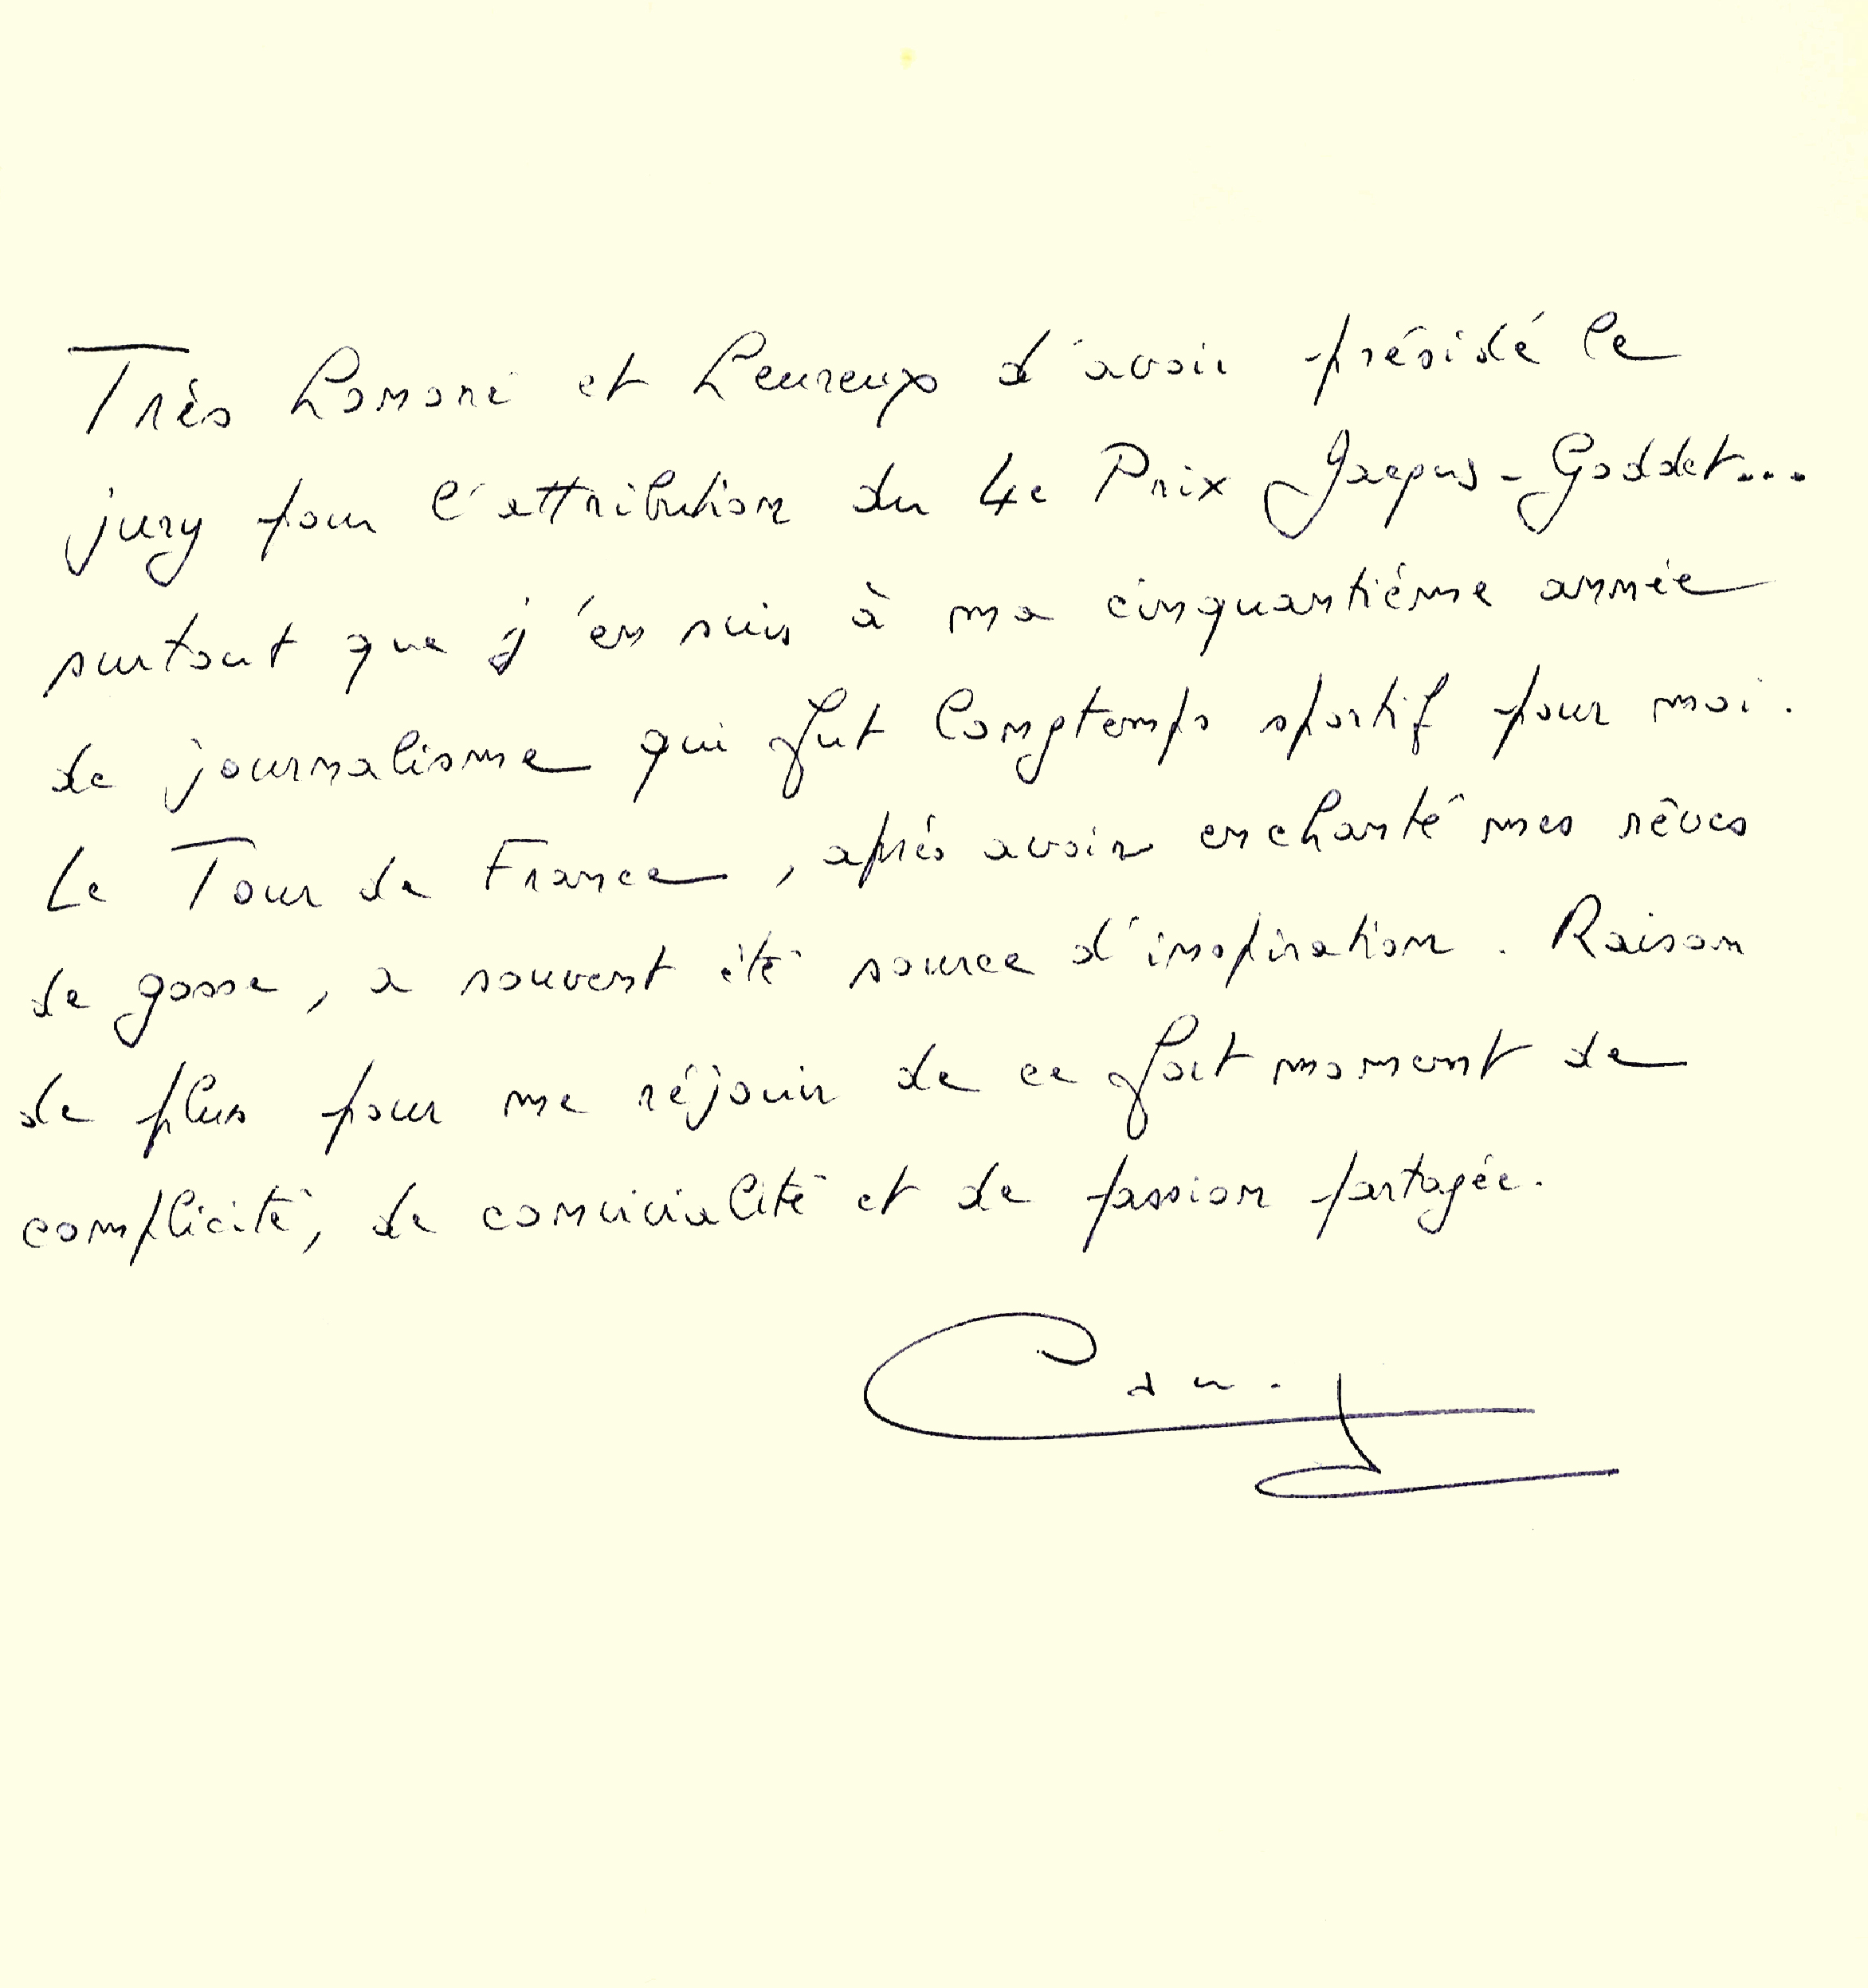 Très honoré et heureux d'avoir présidé le
jury pour l'attribution du 4e Prix Jacques-Goddet...
surtout que j'en suis à ma cinquantième année
de journalisme qui fut longtemps sportif pour moi.
Le Tour de France, après avoir enchanté mes rêves
de gosse, a souvent été source d'inspiration. Raison
de plus pour me réjouir de ce fort moment de
complicité, de convivialité et de passion partagée.